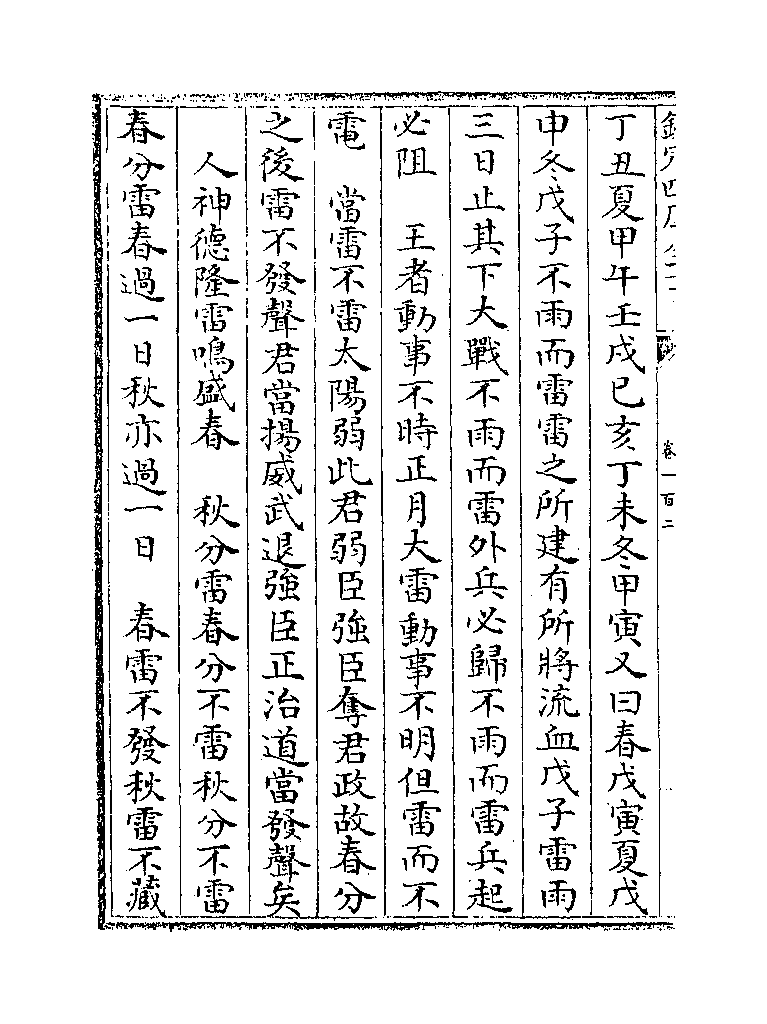 丁丑夏甲午壬戌己亥丁未冬甲寅又曰春戊寅夏戊
申冬戊子不雨而雷雷之所建有所將流血戊子雷雨
三日止其下大戰不雨而雷外兵必歸不雨而雷兵起
必阻　王者動事不時正月大雷動事不明但雷而不
電　當雷不雷太陽弱此君弱臣強臣奪君政故春分
之後雷不發聲君當揚威武退強臣正治道當發聲矣
人神德隆雷鳴盛春　秋分雷春分不雷秋分不雷
春分雷春過一日秋亦過一日　春雷不發秋雷不藏
卷一百二